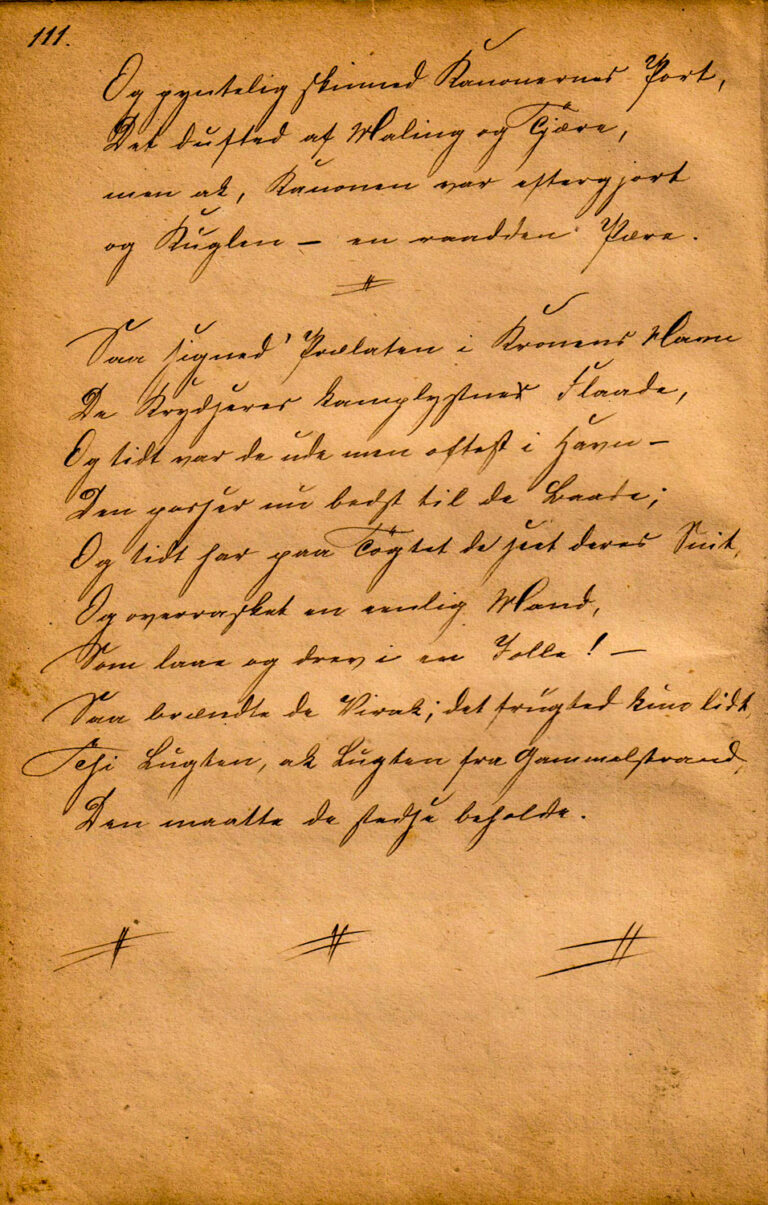 111.
Og pyntelig skinned Kanonernes Port,
Det dufted af Maling og Tjære,
men ak, Kanonen var eftergjort
og Kuglen – en raadden Pære.
Saa signed' Prælaten i Kronens Navn
De Krydseres kamplystnes Flaade,
Og tidt var de ude men oftest i Havn –
Den passer nu bedst til de Baade;
Og tidt har paa Togtet de seet deres Snit,
Og overrasket en eenlig Mand,
Som laae og drev i en Jolle! –
Saa brændte de Virak; det frugted kun lidt,
Thi Lugten, ak Lugten fra Gammelstrand,
Den maatte de stedse beholde.